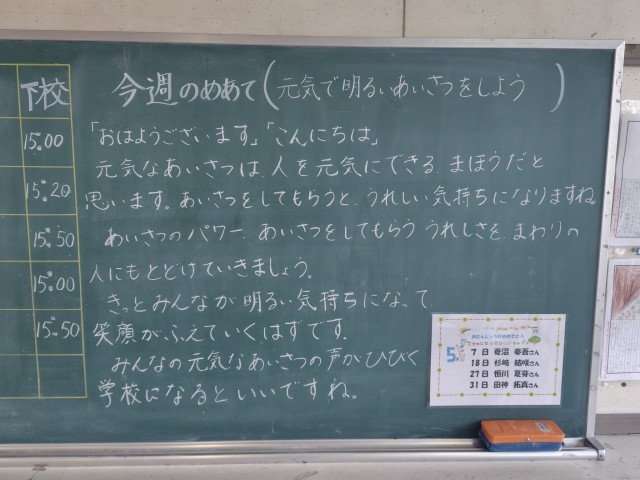 下校
15:00
15:20
15:50
15:00
15:50
今週のめあて(元気で明るいあいさつをしよう)
「おはようございます」「こんにちは」
元気なあいさつは、人を元気にできる、まほうだと
思います。あいさつをしてもらうと、うれしい気持ちになりますね。
あいさつのパワー、あいさつをしてもらううれしさを、まわりの
人にもとどけていきましょう。
きっとみんなが明るい気持ちになって
笑顔がふえていくはずです。
みんなの元気なあいさつの声がひびく
学校になるといいですね。
5月
7日 菱沼 さん
18日 杉崎 結咲さん
27日 恒川 夏芽さん
31日 田神 拓真さん